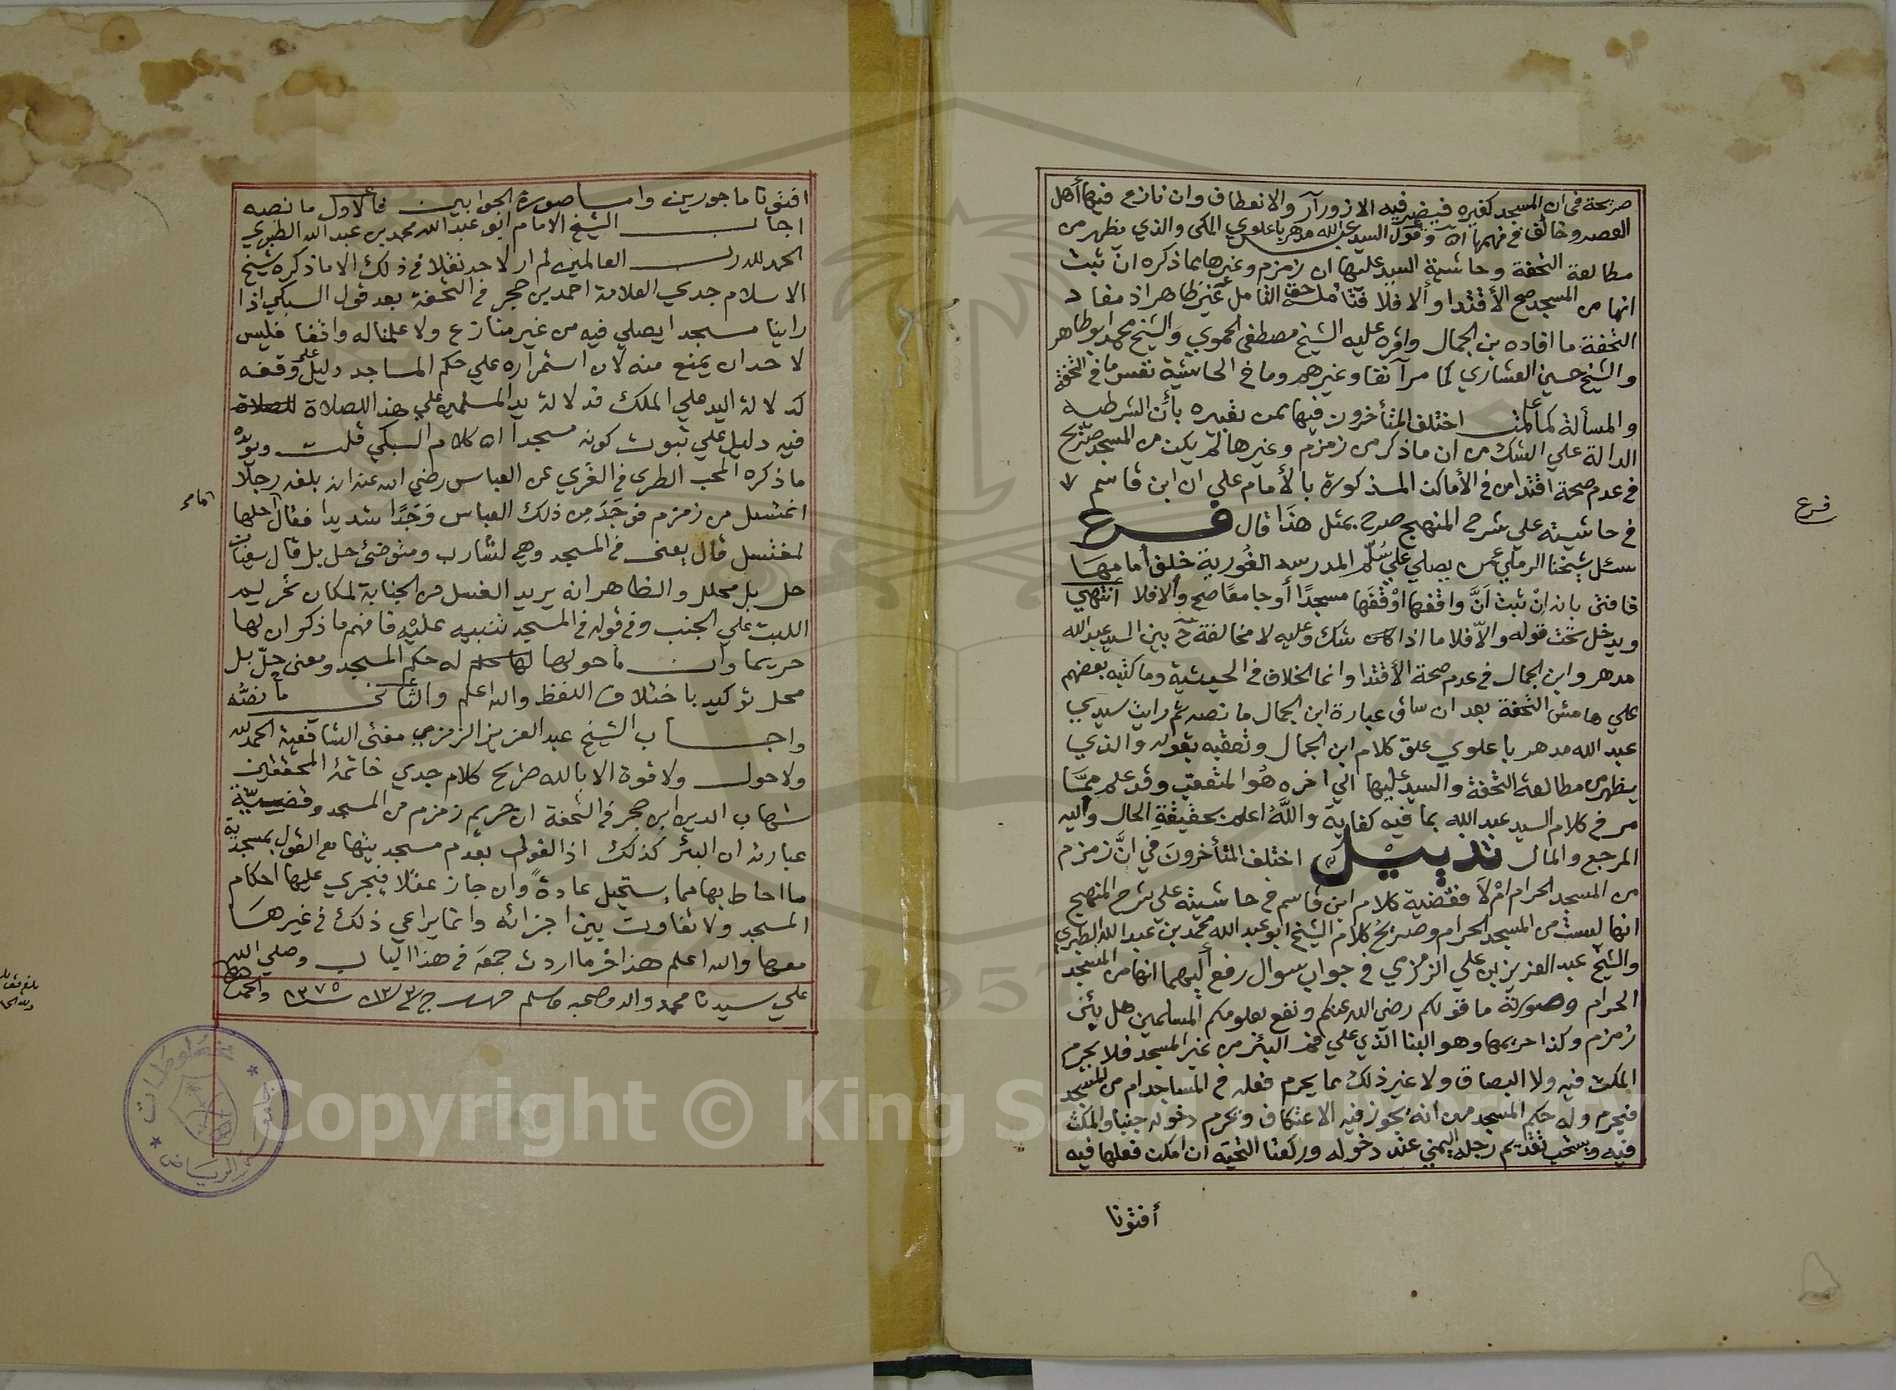 صريحة في ان المسجد كغيره فيضر فيه الازورار والانعطاف وان نازع فيها أهل
العصر وخالف في فهمها اه وقول السيد عبد الله مدهر باعلوي المكي والذي يظهر من
مطالعة التحفة وحاشية السيد عليها ان زمزم وغيرها مما ذكره ان ثبت
انها من المسجد صح الاقتدا وألا فلا فتأمله حق التأمل غير ظاهر اذ مفاد
التحفة ما افاده بن الجمال واقره عليه الشيخ مصطفى الحموي والشيخ محمد ابوطاهر
والشيخ حسين العشاري كما مر آنفا وغيرهم وما في الحاشية نفس ما في التحفة
والمسألة كما علمت اختلف المتأخرون فيها فمن تعبيره بأن الشرطيه
الدالة على الشك من ان ما ذكر من زمزم وغيرها لم يكن من المسجد صريح
في عدم صحة اقتدا من في الأماكن المذكورة بالأمام على ان ابن قاسم
في حاشيته على شرح المنهج صرح بمثل هذا قال فرع
سئل شيخنا الرملي عمن يصلي على سُلَّم المدرسه الغُورية خلف أمامها
فافتى بانه إنْ ثبت أنَّ واقفها اوْقَفَها مسجدًا أو جامعًا صح وألا فلا انتهى
ويدخل تحت قوله وإلاّ فلا ما اذا كان شك وعليه لا مخالفة ح بين السيد عبد الله
مدهر وابن الجمال في عدم صحة الاقتدا وانما الخلاف في الحيثية وما كتبه بعضهم
على هامش التحفة بعد ان ساق عبارة ابن الجمال ما نصه ثم رايت سيدي
عبد الله مدهر باعلوي علق كلام ابن الجمال وتعقبه بقوله والذي
يظهر من مطالعة التحفة والسيد عليها الى اخره هُو المتعقب وقد علم مِمَّا
مر في كلام السيد عبد الله بما فيه كفاية واللَّهُ اعلم بحقيقةِ الحال واليه
المرجع والمال تذييل اختلف المتأخرونَ في انَّ زمزم
من المسجد الحرام امْ لاَ فقضية كلام ابن قاسم في حاشيته على شرح المنهج
انها ليست من المسجد الحرام وصريح كلام الشيخ ابو عبد الله محمد بن عبد الله الطبري
والشيخ عبد العزيز بن علي الزمزمي في جواب سوال رفع أليهما انها من المسجد
الحرام وصورته ما قولكم رضى الله عنكم ونفع بعلومكم المسلمين هل بئر
زمزم وكذا حريمها وهو البنا الذي على فم البئر من غير المسجد فلا يحرم
المكث فيه ولا البصاق ولا غير ذلك مما يحرم فعله في المساجد ام من المسجد
فيحرم وله حكم المسجد من انه يجوز فيه الاعتكاف ويحرم دخوله جنبا والمكث
فيه ويستحب تقديم رجله اليمنى عند دخوله وركعتا التحيه ان امكن فعلها فيه
أفتونا
فرع
افتونا ماجورين واما صورة الجوابين فالاول ما نصه
اجاب الشيخ الامام ابو عبد الله محمد بن عبد الله الطبري
الحمد لله رب العالمين لم ار لاحد نقلا في ذلك الا ما ذكره شيخ
الاسلام جدي العلامة احمد بن حجر في التحفة بعد قول السبكي اذا
راينا مسجدا يصلى فيه من غير منازع ولا علمنا له واقفا فليس
لاحد ان يمنع منه لان استمراره على حكم المساجد دليل على وقفه
كدلالة اليد على الملك فدلالة يد المسلمين على هذا للصلاة للصلاة
فيه دليل على ثبوت كونه مسجدا اه كلام السبكي قلت ويؤيده
ما ذكره المحب الطبري في القرى عن العباس رضي الله عنه انه بلغه رجلا
اغتسل من زمزم فوجَدَ مِن ذلك العباس وَجْدًا شديدا فقال لا احلها
لمغتسل قال يعنى في المسجد وهي لشارب ومتوضئ حل بل قال سفيان
حل بل محلل والظاهر انه يريد الغسل من الجنابة لمكان تحريم
اللبث على الجنب وفي قوله في المسجد تنبيه عليْه فافهم ما ذكر ان لها
حريما وان ما حولها له حكم المسجد ومعنى حلّ بل
محل توكيد باختلاف اللفظ والله اعلم والثاني ما نصُّه
واجاب الشيخ عبد العزيز الزمزمي مفتي الشافعية الحمد لله
ولا حول ولا قوة الا بالله صريح كلام جدي خاتمة المحققين
شهاب الدين ابن حجر في التحفة ان حريم زمزم من المسجد وقضيّة
عبارته ان البئر كذلك اذ القول بعدم مسجديتها مع القول بمسجدية
ما احاط بها مما يستحيل عادةً وان جاز عقلا فيجري عليها احكام
المسجد ولا تفاوت بين اجزائه وانما يراعي ذلك في غيرها
معها والله اعلم هذا اخر ما اردت جمعَه في هذا الباب وصلى الله
على سيدنا محمد واله وصحبه وسلم ١٣٧٥ والحمد لله
مخطوطات
الرياض
1957
Copyright © King Saud University